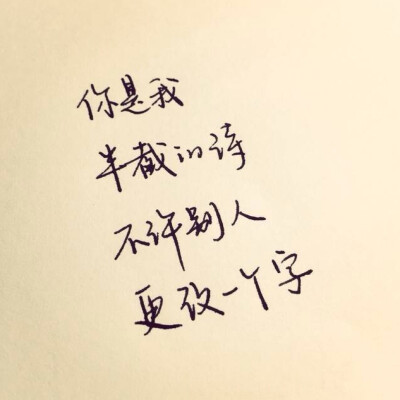 你是我
半截的诗
不许别人
更改一个字